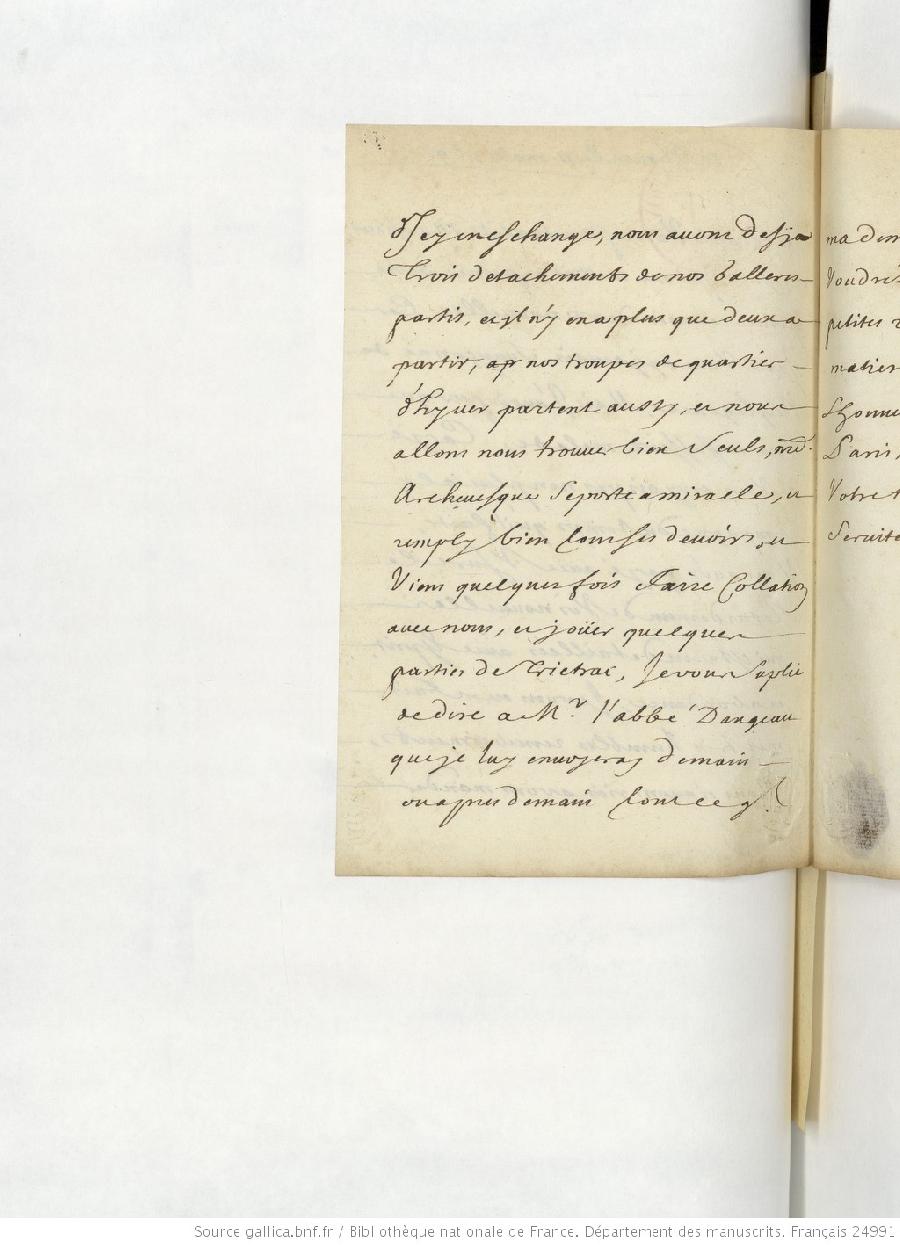 d'Jcy en eschange, nous auons desja
trois detachements de nos
partis, et jl n'y en a plus que deux a
partir, ap nos troupes de quartier
d'hyuer partent aussy, et nous
allons nous trouuer bien seuls, mr
Archeuesque se porte a miracle, et
remply bien tous ses deuoirs, et
Viens quelques fois faire Collation
auec nous, et joüer quelques
parties de trictrac, Je vous suplie
de dire a Mr. l'abbé Dangeau
que je luy enuoyeray demain
ou apres demain tout ce q
ma dem
Voudre
petites
matier
Lhonne
Paris,
Votre t
Seruite
Source gallica.bnf.fr / Bibliothèque nationale de France. Département des manuscrits. Français 24991